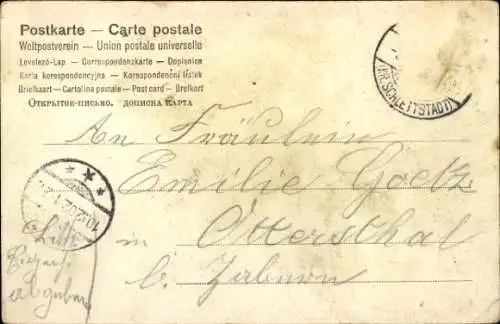 Postkarte — Carte postale
Weltpostverein — Union postale universelle
Levelező-Lap — Correspondenzkarte — Dopisnice
Karta korespondencyjna — Korespondenční lístek
Briefkaart — Cartolina postale — Post card — Brefkort
Открытое-письмо. дописна карта
(KR.SCHLETTSTADT)
An Fräulein
Emilie Goetz
in Ottersthal
b. Zabern
abgeben